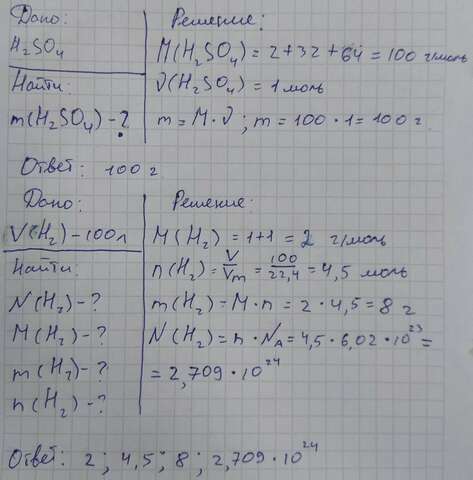 Дано:
H₂SO₄
Найти:
m(H₂SO₄) - ?
Решение:
M(H₂SO₄) = 2+32+64 = 100 г/моль
ν(H₂SO₄) = 1 моль
m = M · ν ; m = 100 · 1 = 100 г
Ответ: 100 г
Дано:
V(H₂) - 100 л
Найти:
N(H₂) - ?
M(H₂) - ?
m(H₂) - ?
n(H₂) - ?
Решение:
M(H₂) = 1+1 = 2 г/моль
n(H₂) = V/Vm = 100/22,4 = 4,5 моль
m(H₂) = M · n = 2 · 4,5 = 8 г
N(H₂) = n · NA = 4,5 · 6,02 · 10²³ =
= 2,709 · 10²⁴
Ответ: 2 ; 4,5 ; 8 ; 2,709 · 10²⁴